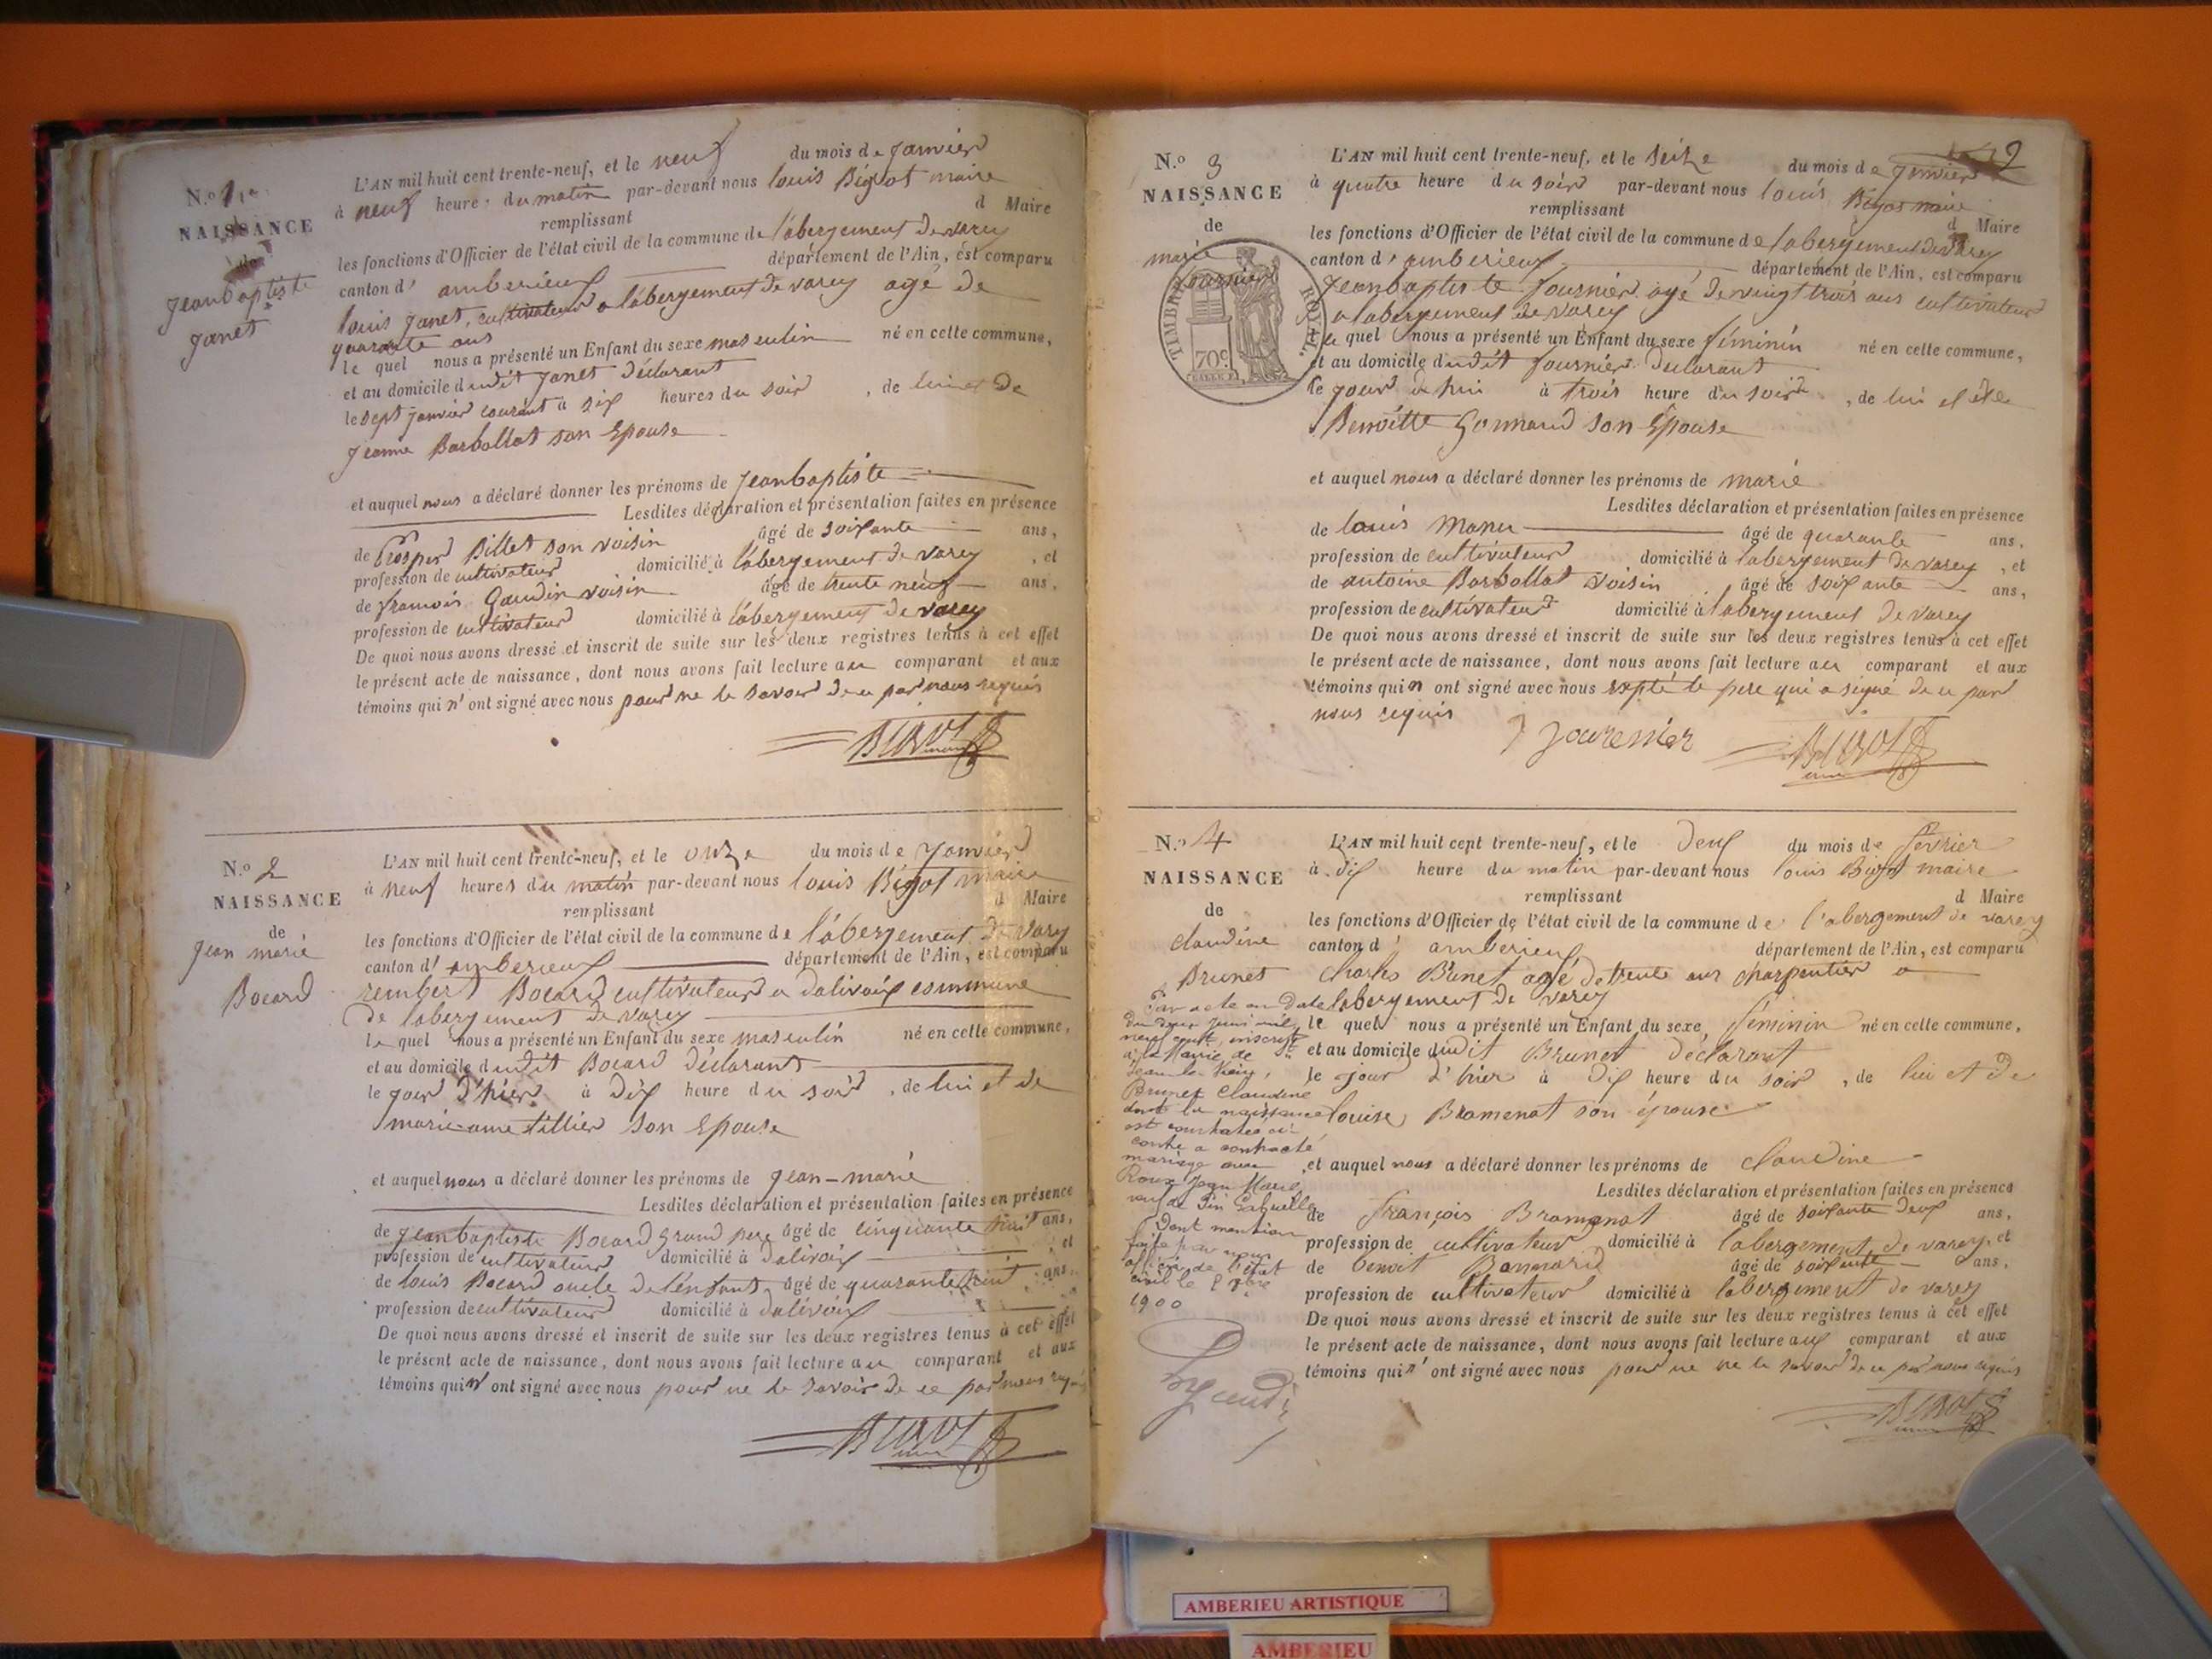 N.º 1er
NAISSANCE
de
Jeanbaptiste
Janet
L'AN mil huit cent trente-neuf, et le neuf du mois de Janvier
à neuf heure du matin par-devant nous louis Bigot maire
remplissant d Maire
les fonctions d'Officier de l'état civil de la commune de l'abergement de varey
canton d' amberieux département de l'Ain, est comparu
louis Janet, cultivateur a l'abergement de varey agé de
quarante ans
le quel nous a présenté un Enfant du sexe masculin né en cette commune,
et au domicile dudit Janet déclarant
le sept janvier courant à six heures du soir, de lui et de
Jeanne Barbollat son Epouse
et auquel nous a déclaré donner les prénoms de Jeanbaptiste
Lesdites déclaration et présentation faites en présence
de Prosper Billet son voisin âgé de soixante ans,
profession de cultivateur domicilié à l'abergement de varey, et
de francois Gaudin voisin âgé de trente neuf ans,
profession de cultivateur domicilié à l'abergement de varey
De quoi nous avons dressé et inscrit de suite sur les deux registres tenus à cet effet
le présent acte de naissance, dont nous avons fait lecture au comparant et aux
témoins qui n' ont signé avec nous pour ne le savoir de ce par nous requis
Bigot
N.º 2
NAISSANCE
de
Jean marie
Bocard
L'AN mil huit cent trente-neuf, et le onze du mois de Janvier
à neuf heures du matin par-devant nous louis Bigot maire
remplissant d Maire
les fonctions d'Officier de l'état civil de la commune de l'abergement de vary
canton d' amberieux département de l'Ain, est comparu
rembert Bocard cultivateur a dalivoix commune
de l'abergement de varey
le quel nous a présenté un Enfant du sexe masculin né en cette commune,
et au domicile dudit Bocard déclarant
le jour d'hier à dix heure du soir, de lui et de
marie anne tillier son Epouse
et auquel nous a déclaré donner les prénoms de Jean-marie
Lesdites déclaration et présentation faites en présence
de Jeanbaptiste Bocard Grand pere âgé de cinquante huit ans,
profession de cultivateur domicilié à dalivoix et
de louis Bocard oncle de l'enfant âgé de quarante huit ans,
profession de cultivateur domicilié à dalivoix
De quoi nous avons dressé et inscrit de suite sur les deux registres tenus à cet effet
le présent acte de naissance, dont nous avons fait lecture au comparant et aux
témoins qui n' ont signé avec nous pour ne le savoir de ce par nous requis
Bigot
2
N.º 3
NAISSANCE
de
marie
fournier
TIMBRE ROYAL.
70c.
L'AN mil huit cent trente-neuf, et le seize du mois de Janvier
à quatre heure du soir par-devant nous louis Bigot maire
remplissant d Maire
les fonctions d'Officier de l'état civil de la commune de labergement de varey
canton d' amberieux département de l'Ain, est comparu
Jeanbaptiste fournier agé de vingt trois ans cultivateur
a labergement de varey
le quel nous a présenté un Enfant du sexe féminin né en cette commune,
et au domicile dudit fournier déclarant
le jour d hui à trois heure du soir, de lui et de
Benoitte Gonnand son Epouse
et auquel nous a déclaré donner les prénoms de marie
Lesdites déclaration et présentation faites en présence
de louis âgé de quarante ans,
profession de cultivateur domicilié à labergement de varey, et
de antoine Barbollat voisin âgé de soixante ans,
profession de cultivateur domicilié à labergement de varey
De quoi nous avons dressé et inscrit de suite sur les deux registres tenus à cet effet
le présent acte de naissance, dont nous avons fait lecture au comparant et aux
témoins qui n ont signé avec nous expté le pere qui a signé de ce par
nous requis
Bigot
N.º 4
NAISSANCE
de
claudine
Brunet
L'AN mil huit cent trente-neuf, et le deux du mois de février
à dix heure du matin par-devant nous louis Bigot maire
remplissant d Maire
les fonctions d'Officier de l'état civil de la commune de l'abergement de varey
canton d' amberieux département de l'Ain, est comparu
Charles Brunet agé de trente ans charpentier a
labergement de varey
le quel nous a présenté un Enfant du sexe féminin né en cette commune,
et au domicile dudit Brunet déclarant
le jour d'hier à dix heure du soir, de lui et de
louise Bramenat son épouse
et auquel nous a déclaré donner les prénoms de claudine
Lesdites déclaration et présentation faites en présence
de françois Bramenat âgé de soixante deux ans,
profession de cultivateur domicilié à labergement de varey, et
de benoit âgé de soixante ans,
profession de cultivateur domicilié à labergement de varey
De quoi nous avons dressé et inscrit de suite sur les deux registres tenus à cet effet
le présent acte de naissance, dont nous avons fait lecture aux comparant et aux
témoins qui n' ont signé avec nous pour ne le savoir de ce par nous requis
Bigot
Par acte en date
du deux juin mil
neuf cent, inscrit
à la Mairie de St
Jean-le-Vieux,
Brunet Claudine
dont la naissance
est constatée ci-
contre a contracté
mariage avec
Roux Jean Marie
veuf de
Dont mention
faite par nous
officier de l'état
civil le
1900
AMBERIEU ARTISTIQUE
AMBERIEU